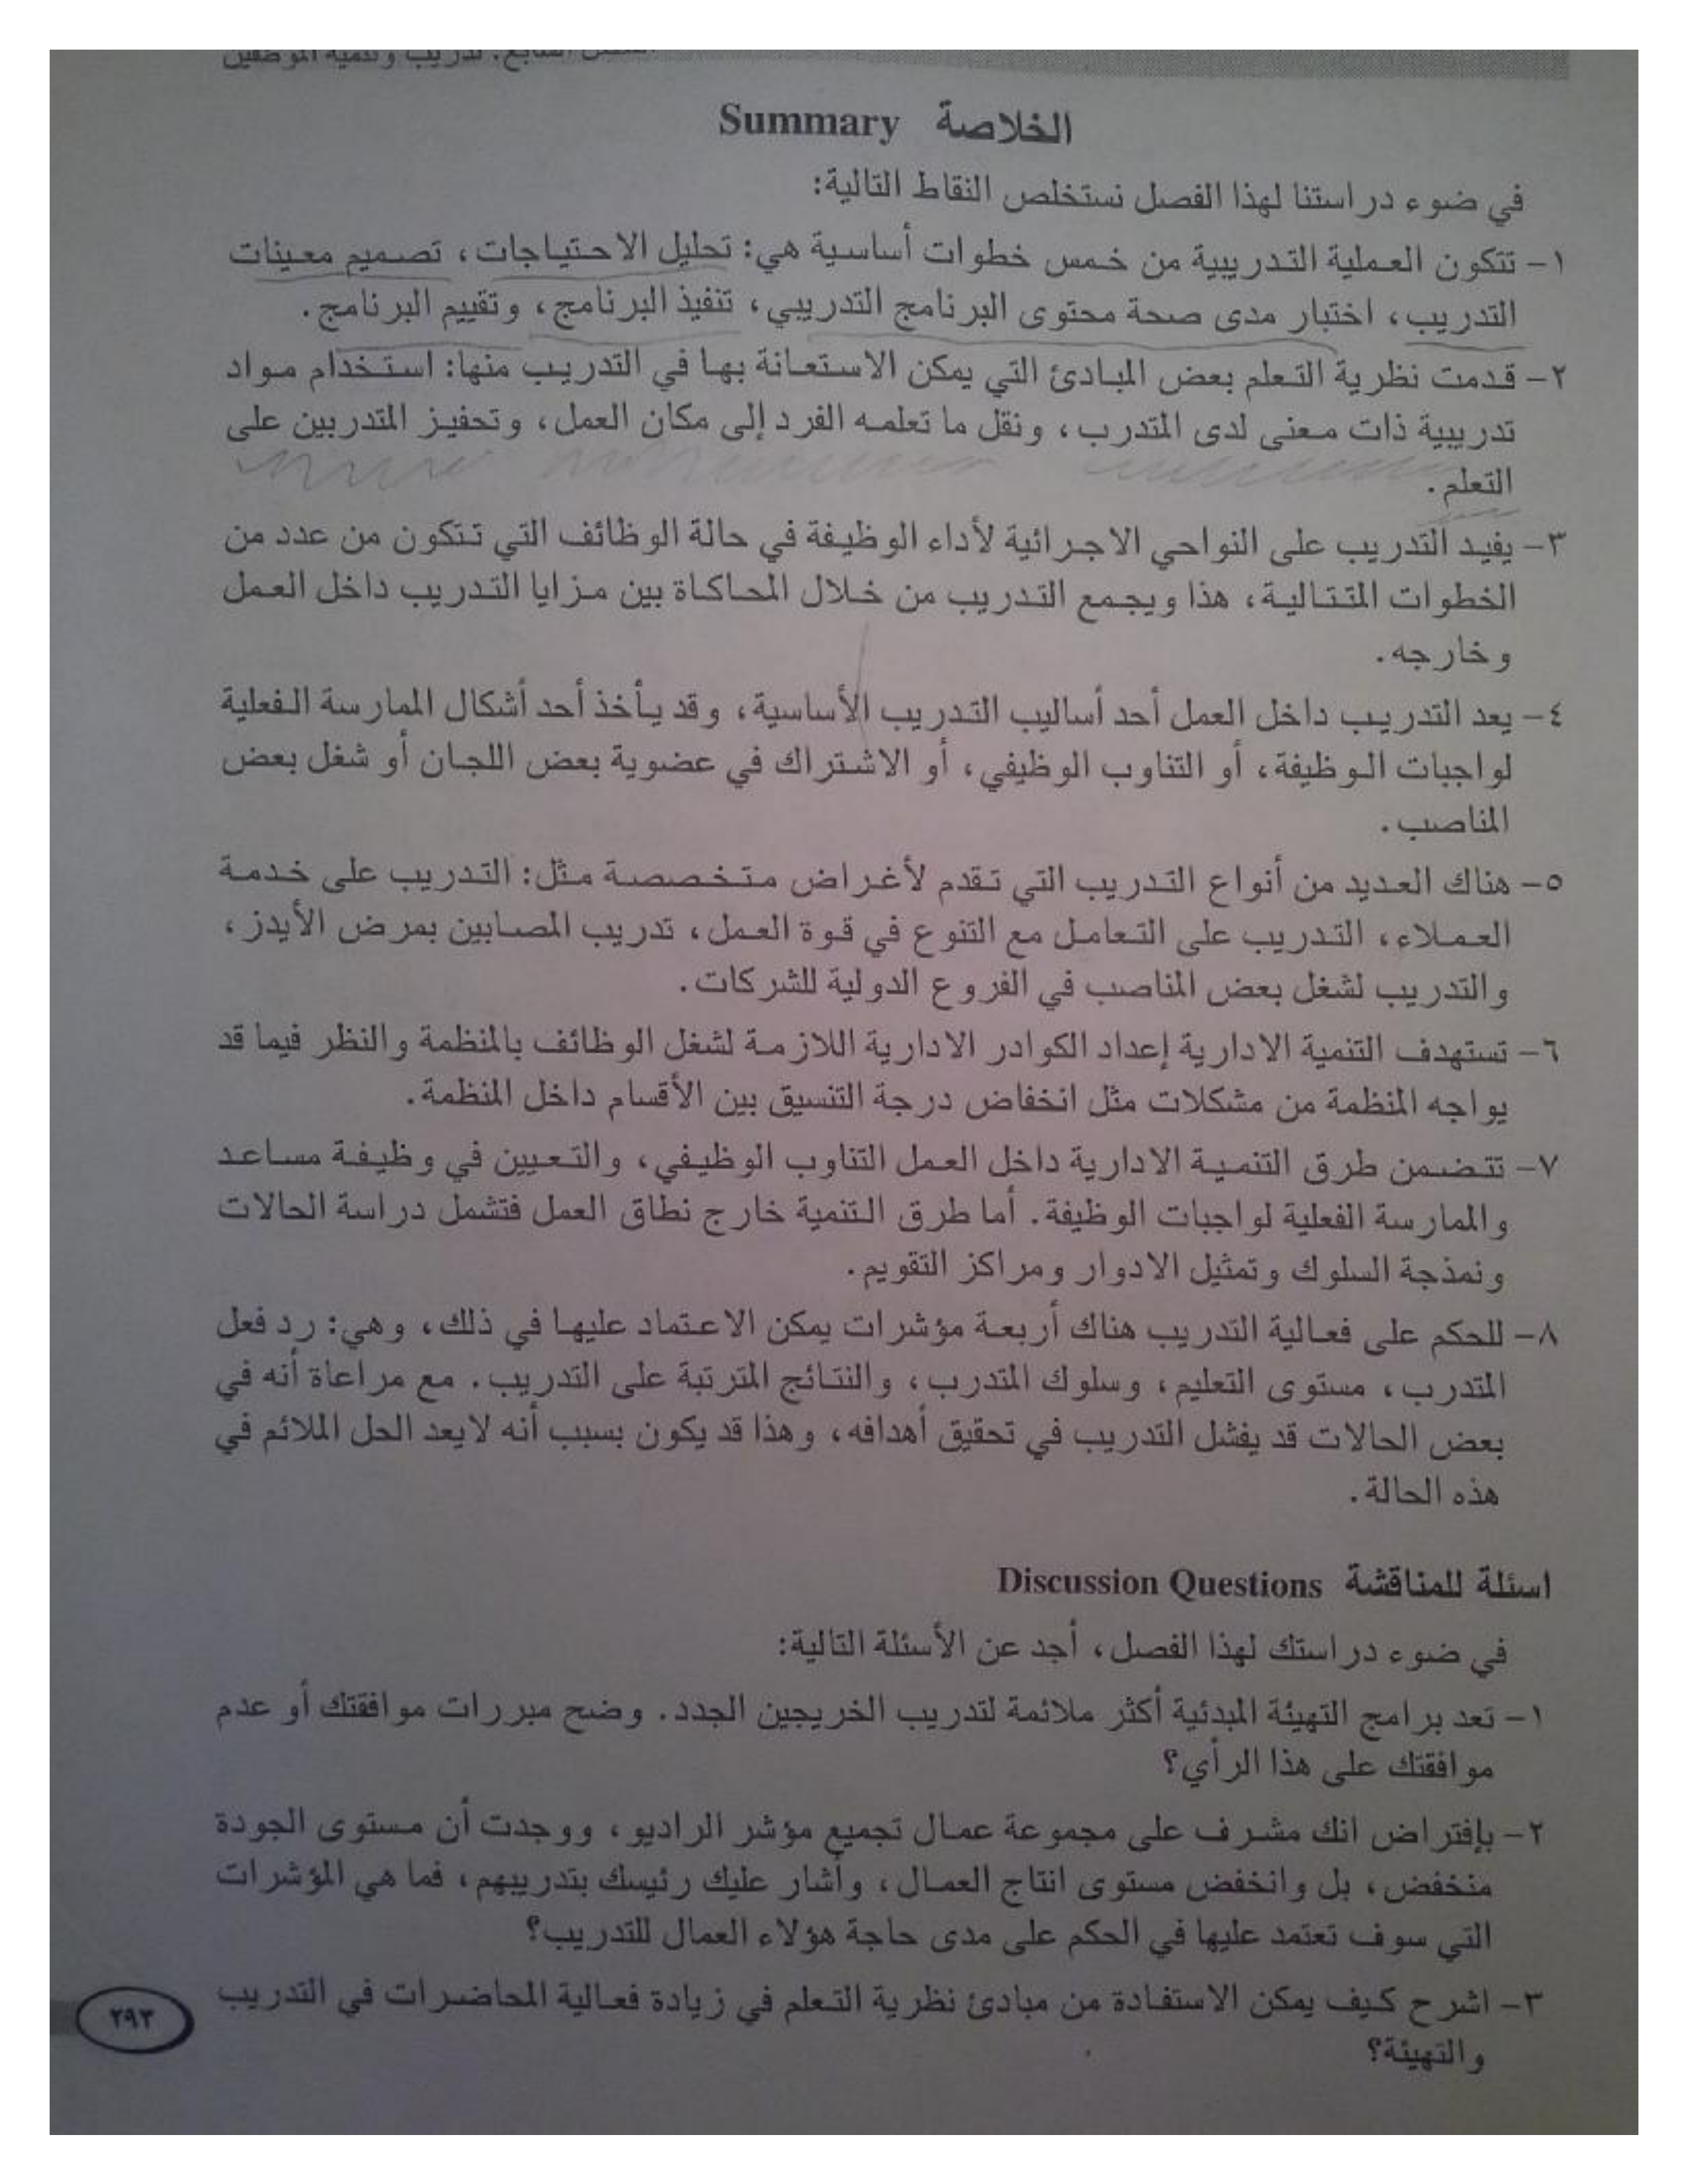 الفصل السابع: تدريب وتنمية الموظفين
الخلاصة Summary
في ضوء دراستنا لهذا الفصل نستخلص النقاط التالية:
١- تتكون العملية التدريبية من خمس خطوات أساسية هي: تحليل الاحتياجات، تصميم معينات
التدريب، اختبار مدى صحة محتوى البرنامج التدريبي، تنفيذ البرنامج، وتقييم البرنامج.
٢- قدمت نظرية التعلم بعض المبادئ التي يمكن الاستعانة بها في التدريب منها: استخدام مواد
تدريبية ذات معنى لدى المتدرب، ونقل ما تعلمه الفرد إلى مكان العمل، وتحفيز المتدربين على
التعلم.
٣- يفيد التدريب على النواحي الاجرائية لأداء الوظيفة في حالة الوظائف التي تتكون من عدد من
الخطوات المتتالية، هذا ويجمع التدريب من خلال المحاكاة بين مزايا التدريب داخل العمل
وخارجه.
٤- يعد التدريب داخل العمل أحد أساليب التدريب الأساسية، وقد يأخذ أحد أشكال الممارسة الفعلية
لواجبات الوظيفة، أو التناوب الوظيفي، أو الاشتراك في عضوية بعض اللجان أو شغل بعض
المناصب.
٥- هناك العديد من أنواع التدريب التي تقدم لأغراض متخصصة مثل: التدريب على خدمة
العملاء، التدريب على التعامل مع التنوع في قوة العمل، تدريب المصابين بمرض الأيدز،
والتدريب لشغل بعض المناصب في الفروع الدولية للشركات.
٦- تستهدف التنمية الادارية إعداد الكوادر الادارية اللازمة لشغل الوظائف بالمنظمة والنظر فيما قد
يواجه المنظمة من مشكلات مثل انخفاض درجة التنسيق بين الأقسام داخل المنظمة.
٧- تتضمن طرق التنمية الادارية داخل العمل التناوب الوظيفي، والتعيين في وظيفة مساعد
والممارسة الفعلية لواجبات الوظيفة. أما طرق التنمية خارج نطاق العمل فتشمل دراسة الحالات
ونمذجة السلوك وتمثيل الادوار ومراكز التقويم.
٨- للحكم على فعالية التدريب هناك أربعة مؤشرات يمكن الاعتماد عليها في ذلك، وهي: رد فعل
المتدرب، مستوى التعليم، وسلوك المتدرب، والنتائج المترتبة على التدريب. مع مراعاة أنه في
بعض الحالات قد يفشل التدريب في تحقيق أهدافه، وهذا قد يكون بسبب أنه لايعد الحل الملائم في
هذه الحالة.
اسئلة للمناقشة Discussion Questions
في ضوء دراستك لهذا الفصل، أجد عن الأسئلة التالية:
١- تعد برامج التهيئة المبدئية أكثر ملائمة لتدريب الخريجين الجدد. وضح مبررات موافقتك أو عدم
موافقتك على هذا الرأي؟
٢- بإفتراض انك مشرف على مجموعة عمال تجميع مؤشر الراديو، ووجدت أن مستوى الجودة
منخفض، بل وانخفض مستوى انتاج العمال، وأشار عليك رئيسك بتدريبهم، فما هي المؤشرات
التي سوف تعتمد عليها في الحكم على مدى حاجة هؤلاء العمال للتدريب؟
٣- اشرح كيف يمكن الاستفادة من مبادئ نظرية التعلم في زيادة فعالية المحاضرات في التدريب
والتهيئة؟
٢٩٣